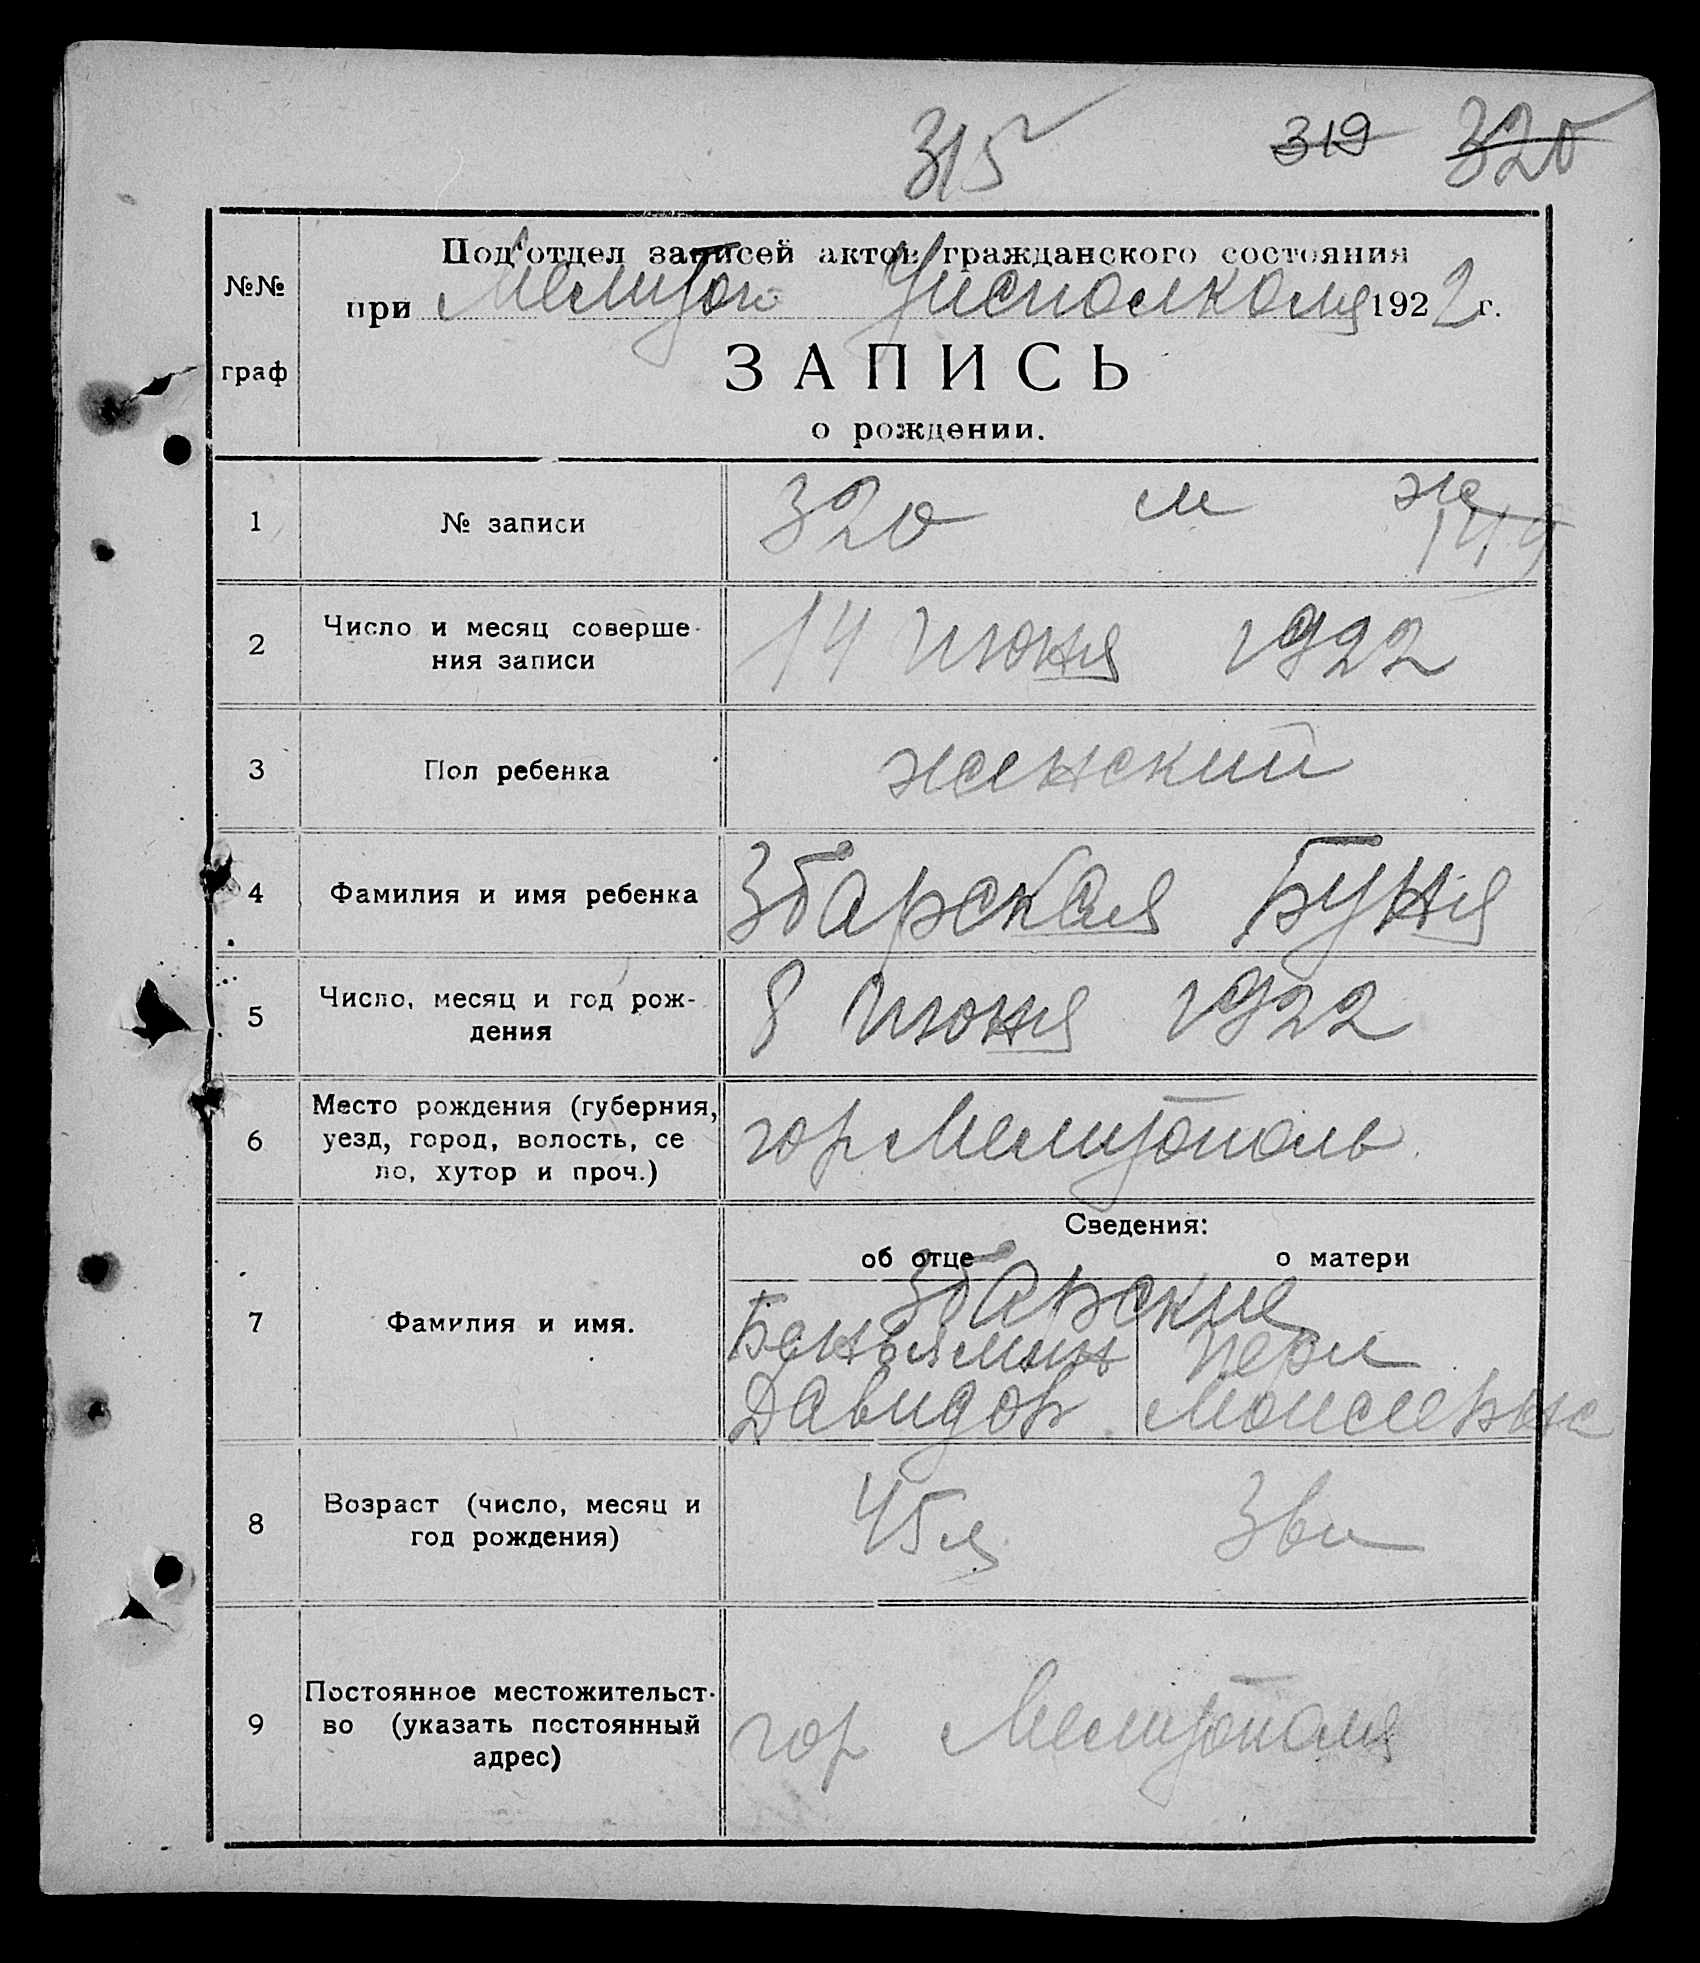 315 319 320
Под'отдел записей актов гражданского состояния
№№
при Мелитоп Уисполкома 1922 г.
граф
ЗАПИСЬ
о рождении.
1 № записи 320 м ж
149
2 Число и месяц соверше-
ния записи 14 июня 1922
3 Пол ребенка женский
4 Фамилия и имя ребенка Збарская Буня
5 Число, месяц и год рож-
дения 8 июня 1922
6 Место рождения (губерния,
уезд, город, волость, се
ло, хутор и проч.) гор Мелитополь
Сведения:
об отце о матери
Збарские
7 Фамилия и имя. Беньямин Перл
Давидов. Моисеевна
8 Возраст (число, месяц и
год рождения) 45 л
9 Постоянное местожительст-
во (указать постоянный
адрес) гор Мелитополя